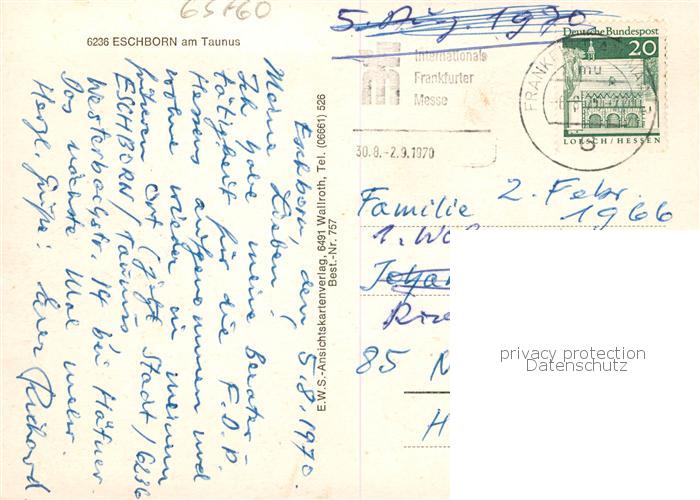 65760
6236 ESCHBORN am Taunus
Eschborn, den 5.8.1970.
Meine Lieben!
Ich habe meine Berater-
tätigkeit für die F.D.P.
Hessens aufgenommen und
wohne wieder in meinem
früheren Ort (jetzt Stadt) 6236
ESCHBORN/Taunus
Westerbachstr. 14 bei Häfner
Das nächste Mal mehr.
Herzl. Grüße! Euer Richard
E.W.S.-Ansichtskartenverlag, 6491 Wallroth, Tel. (06661) 526
Best.-Nr. 757
5. Aug. 1970
Internationale
Frankfurter
Messe
30.8.-2.9.1970
FRANKF
Deutsche Bundespost
20
LORSCH/HESSEN
Familie
2. Febr.
1966
1.
85 N
H
privacy protection
Datenschutz